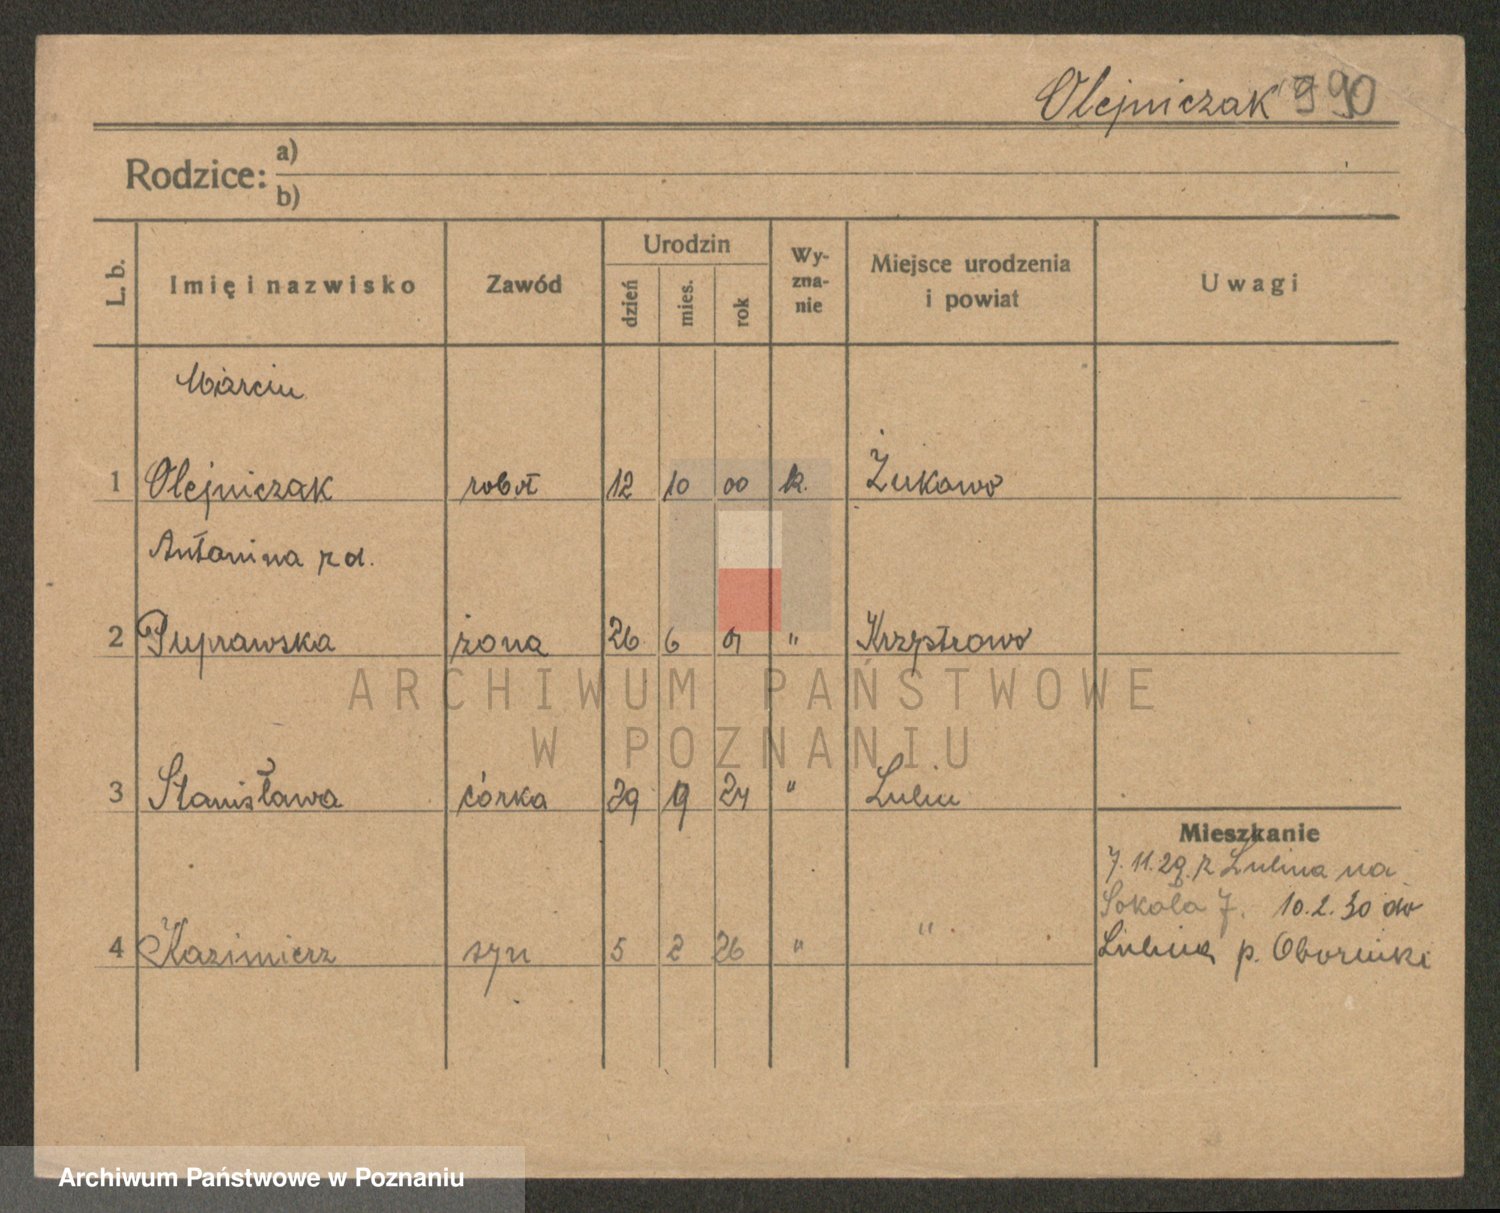 Olejniczak 990
Rodzice: a)
b)
L. b.
Imię i nazwisko
Zawód
Urodzin
dzień
mies.
rok
Wy-
zna-
nie
Miejsce urodzenia
i powiat
Uwagi
Marcin
1 Olejniczak robot 12 10 00 k. Żukowo
Antonina z d.
2 żona 26 6 01 "
ARCHIWUM PAŃSTWOWE
W POZNANIU
3 Stanisława córka 29 9 24 " Lulin
Mieszkanie
7.11.29. z Lulina na
Sokoła 7. 10.2.30 do
4 Kazimierz syn 5 2 26 " "
Lulina p. Oborniki
Archiwum Państwowe w Poznaniu